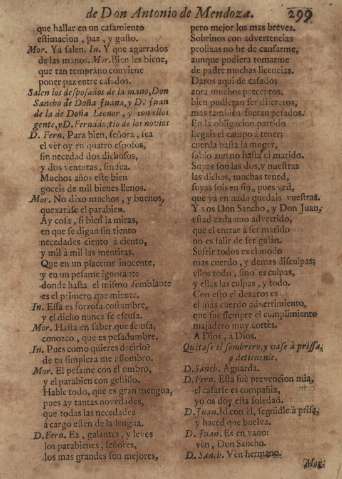 de Don Antonio de Mendoza. 299
que hallar en un casamiento
estimacion, paz, y gusto.
Mor. Ya salen. In. Y que agarrados
de las manos. Mor. Bien les viene,
que tan temprano conviene
poner paz entre casados.
Salen los desposados de la mano, Don
Sancho de Doña Juana, y D. Juan
de la de Doña Leonor, y con ellos
gente, y D. Fernando, tio de los novios
D. Fern. Para bien, señora, sea
el ver oy en quatro esposos,
sin necedad dos dichosos,
y dos venturas, sin dea.
Muchos años este bien
goceis de mil bienes llenos.
Mor. No dixo muchos, y buenos,
quexaráse el parabien.
Ay cosa, si bien la miras,
en que se digan sin tiento
necedades ciento à ciento,
y mil à mil las mentiras.
Que en un placeme inocente,
y en un pesame ignorante
donde hasta el mismo semblante
es el primero que miente.
In. Essa es forçosa costumbre,
y el dicho nunca se escusa.
Mor. Hasta en saber que se usa,
conozco, que es pesadumbre.
In. Pues como quieres decirlo
de tu simpleza me assombro.
Mor. El pesame con el ombro,
y el parabien con gestillo.
Hable todo, que es gran mengua,
pues ay tantas novedades,
que todas las necedades
à cargo esten de la lengua.
D. Fern. Ea, galanes, y leves
los parabienes, señores,
los mas grandes son mejores,
pero mejor los mas breves.
Sobrinos con advertencias
prolixas no he de cansarme,
aunque pudiera tomarme
de padre muchas licencias.
Daros aqui de casados
aora muchos preceptos,
bien pudieran ser discretos,
mas tambien seran pesados.
En la obligacion partido
llegais el campo à tener;
cuerda hasta la muger,
sabio aun no hasta el marido.
Suyas son las dos, y nuestras
las dichas, mucho tened,
suyas sois en fin, pues
que ya en nada quedais vuestras.
Y vos Don Sancho, y Don Juan,
estad cada uno advertido,
que el entrar à ser marido
no es salir de ser galán.
Sufrir todos es lo mas
mas cuerdo, y demas disculpas;
ellos todo, sino es culpas,
y ellas las culpas, y todo.
Con esto el dexaros es
el mas cuerdo advertimiento,
que fue siempre el cumplimiento
majadero muy cortes.
A Dios, a Dios.
Quitase el sombrero, y vase à prissa,
y detienenle.
D. Sanch. Aguarda.
D. Fern. Esta fue prevencion mia,
el casarse es compañia,
yo os doy esta soledad.
D. Juan. Id con él, seguidle à prisa,
y haced que buelva.
D. Juan. Es en vano:
vèn, Don Sancho.
D. Sanch. Vèn hermano.